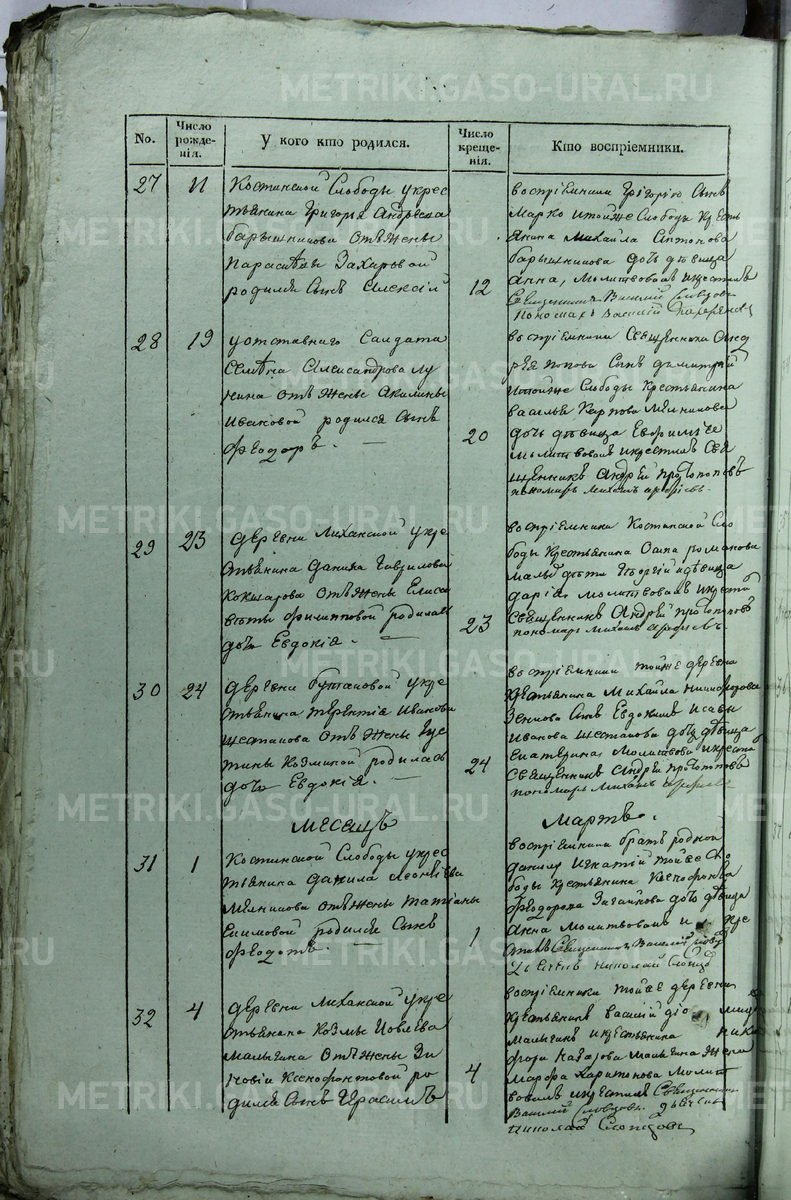 METRIKI.GASO-URAL.RU
No.
Число рожде-нія.
У кого кто родился.
Число креще-нія.
Кто воспріемники.
27 11
Костинской Слободы укрес
тьянина Григорья Андреева
барышникова отъ жены
Параскевы Захаровой
родился сынъ Алексій
12
воспріемники Григорію сынъ
Марко итойже Слободы кресть
янина Михайла Антонова
барышникова дочь дѣвица
Анна, молитвовалъ икрестилъ
Священникъ Василій Словцовъ
28 19
уотставнаго Салдата
Александрова Лу
кина отъ жены Акилины
Ивановой родился сынъ
Феодоръ. —
20
воспріемники Священника Анд
рея попова сынъ димитрій
итойже Слободы крестьянина
василья Карпова Мѣлникова
дочь дѣвица
молитвовалъ икрестилъ Свя
щенникъ Андрей протопоповъ
пономарь Михаилъ
29 23
деревни Лиханской укре
стьянина данила Гавриловa
Кокшарова отъ жены Елиса
веты Филипповой родилась
дочь Евдокія. —
23
воспріемники Костинской Сло
боды крестьянина Осипа романова
дѣти Георгій идѣвица
дарія молитвовалъ икрестил
Священникъ Андрей протопоповъ
пономарь Михаилъ
30 24
деревни бутановой укре
стьянина терентія Иванова
шестакова отъ жены Гус
тины Козминой родилась
дочь Евдокія. —
24
воспріемники тойже деревни
крестьянина Михайла никифорова
Зенкова сынъ Евдокимъ исавы
Иванова шестакова дочь дѣвица
Екатерина молитвовалъ икрестил
Священникъ Андрей протопоповъ
пономарь Михаилъ
Месяцъ Мартъ.
31 1
Костинской Слободы укрес
тьянина данила Леонтьева
Мѣлникова отъ жены татіаны
Екимовой родился сынъ
Феодотъ. —
1
воспріемники братъ родной
данилу Игнатій тойже Сло
боды крестьянина Ксенофонта
Феодорова дочь дѣвица
Анна молитвовалъ и кре
стилъ Священникъ Василій
николай
32 4
деревни Лиханской укре
стьянина Козмы Иовлева
Малыгина отъ жены Зи
новіи Ксенофонтовой ро
дился сынъ Герасимъ
4
воспріемники тойже деревни
крестьянинъ василій
малыгинъ икрестьянина ники
фора Назарова малыгина жена
Марфа Харитонова молит
вовалъ икрестилъ Священникъ
Василій Словцовъ
Николай